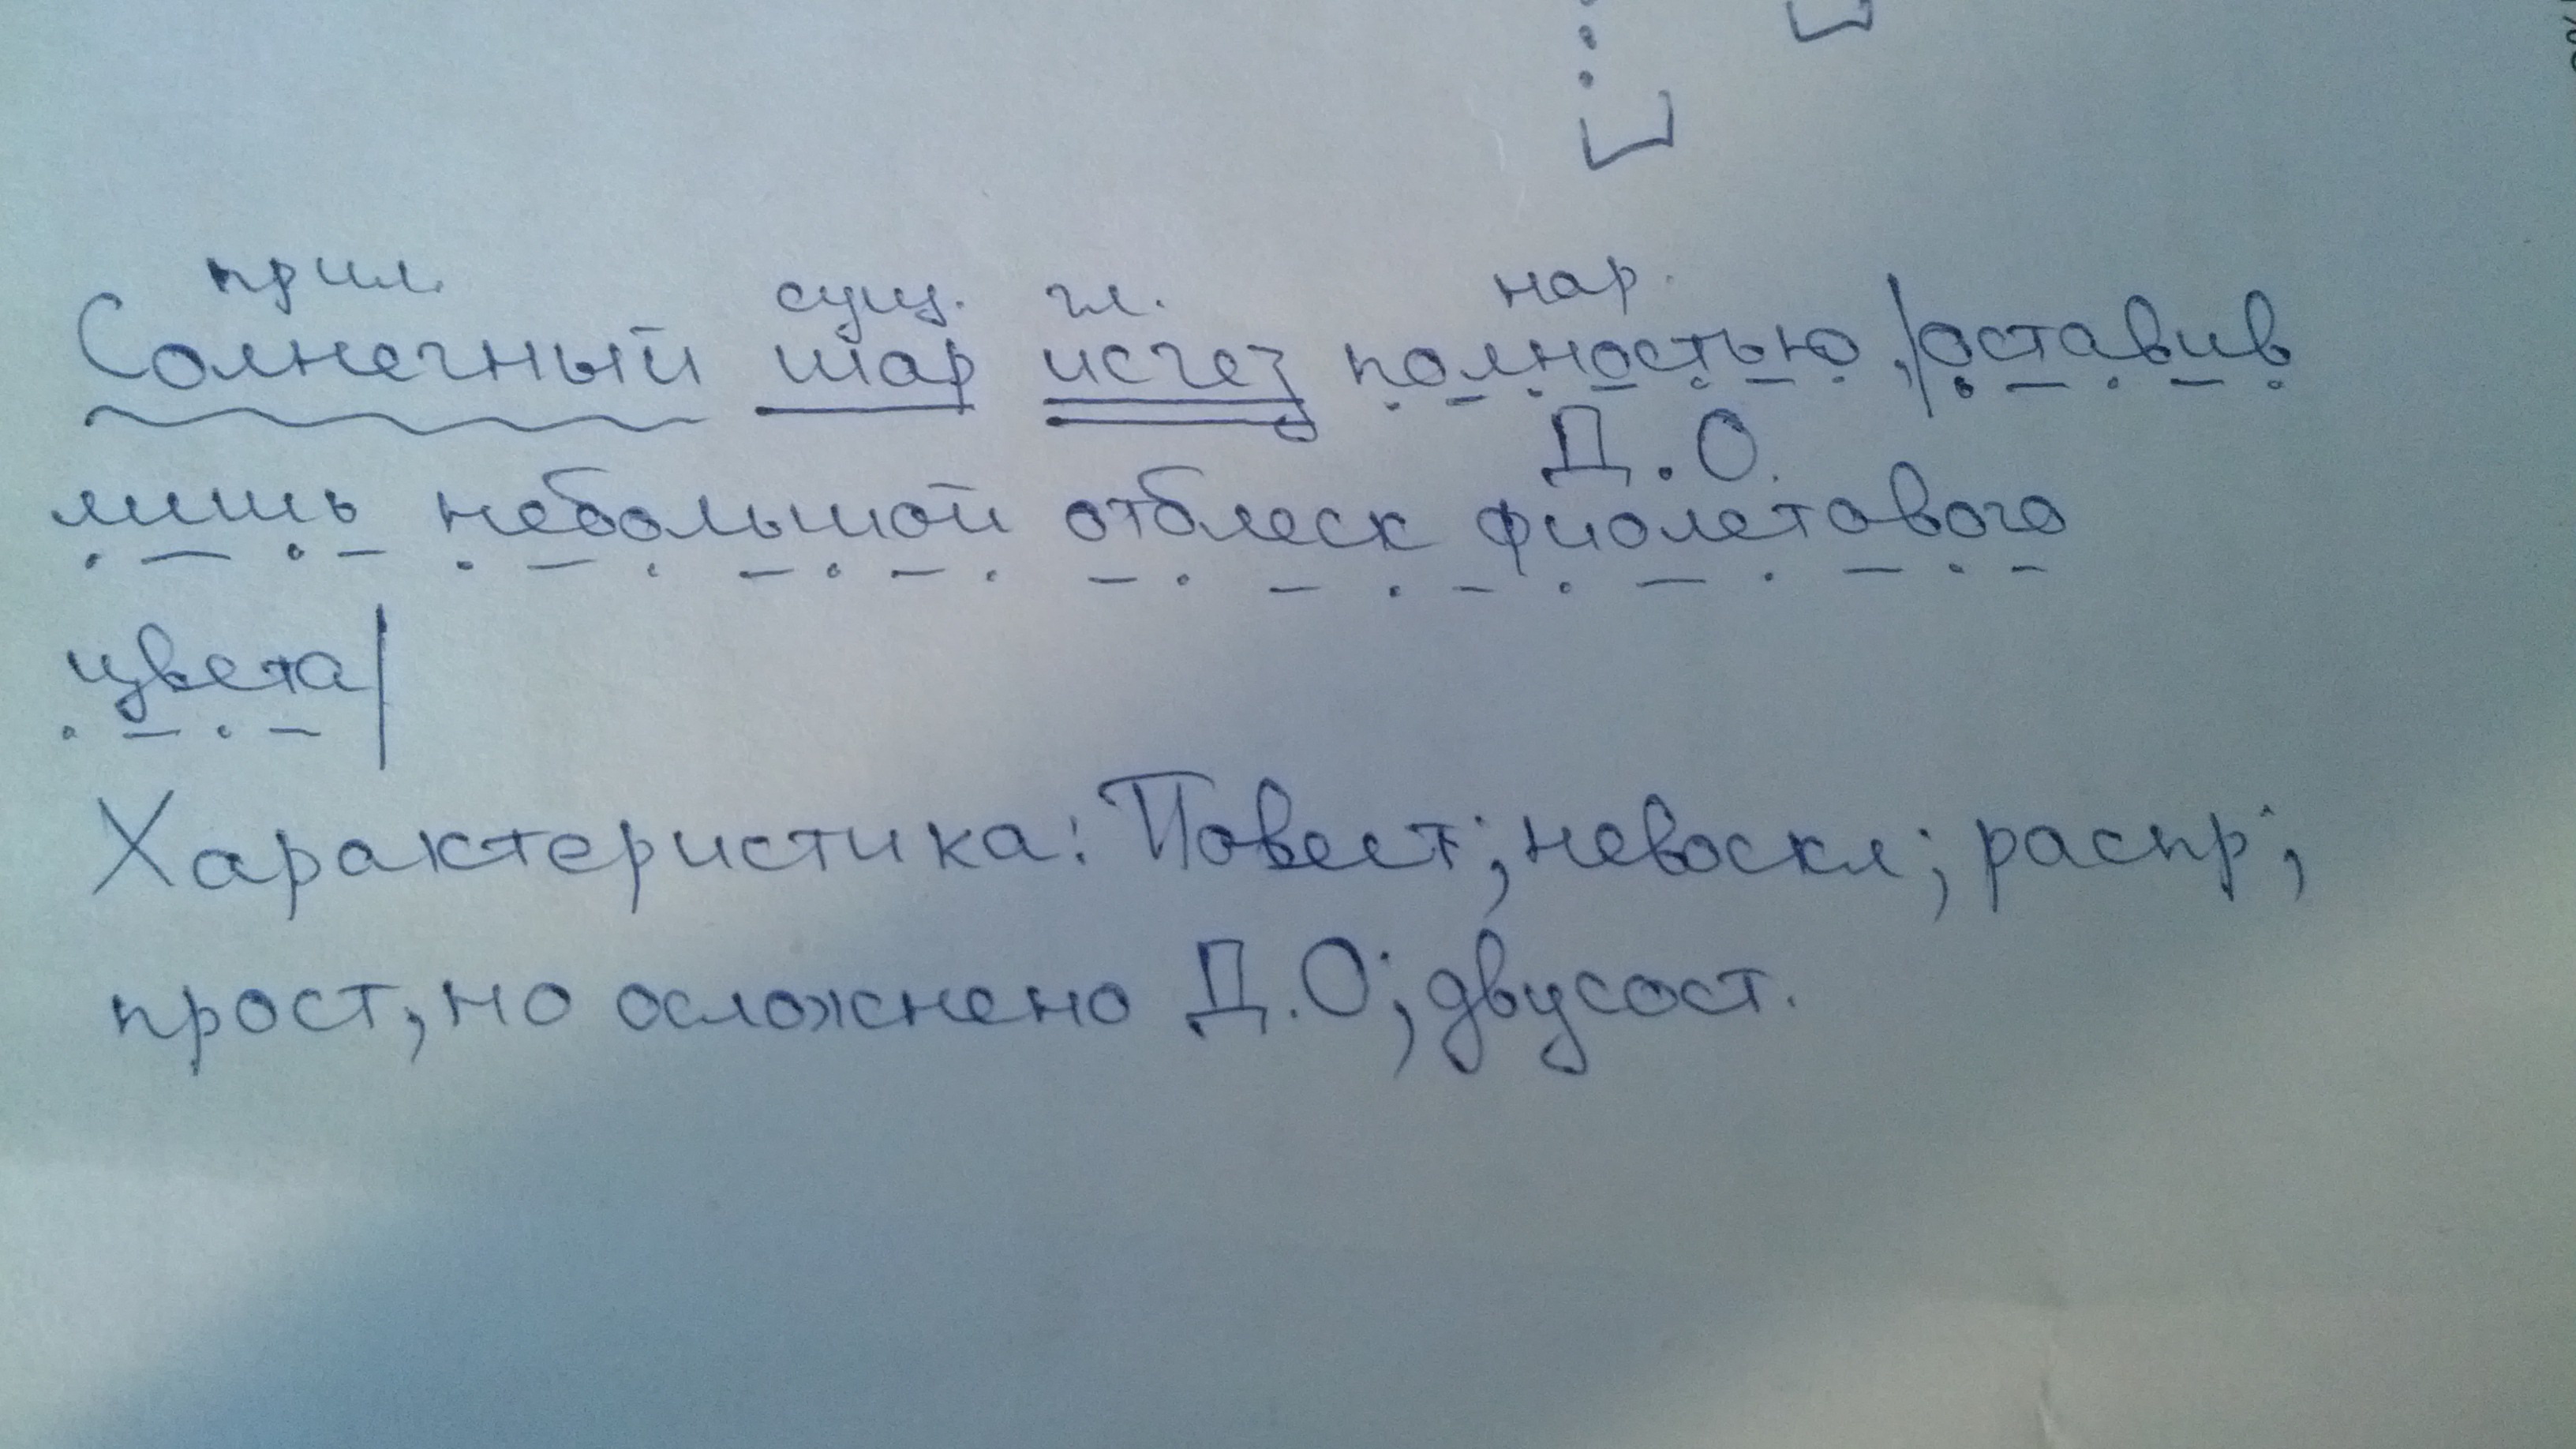 прил. сущ. гл. нар.
Солнечный шар исчез полностью, |оставив
Д.О.
лишь небольшой отблеск фиолетового
цвета|
Характеристика: Повест; невоскл; распр;
прост, но осложнено Д.О; двусост.